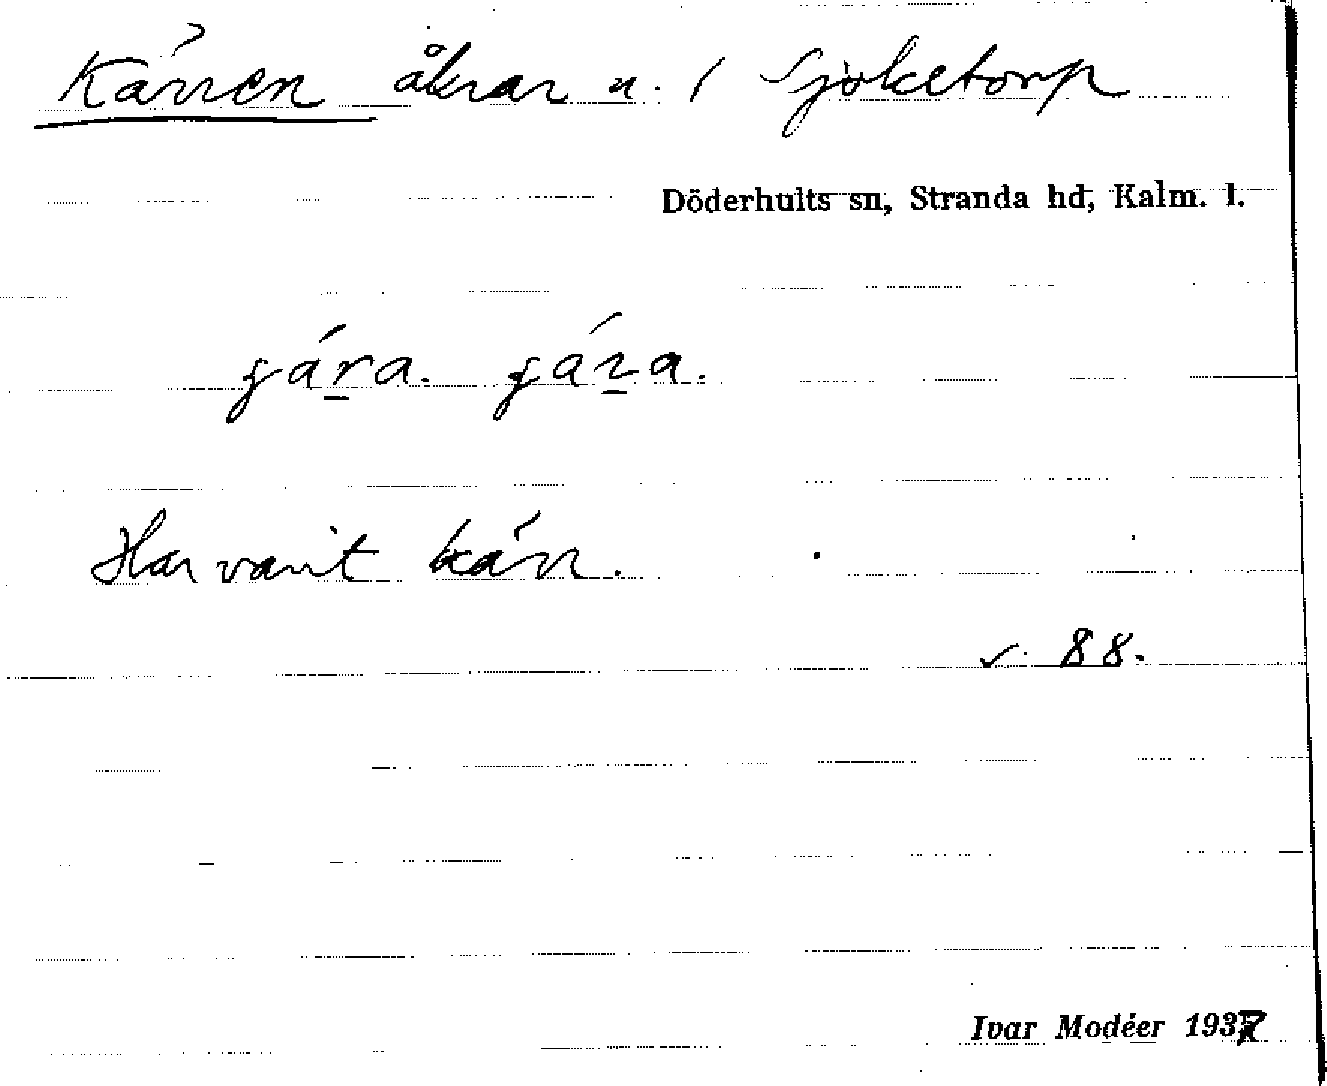 Kärren åkrar n. / Sjöketorp
Döderhults sn, Stranda hd, Kalm. l.
Har varit kärr.
s. 88.
Ivar Modéer 1937